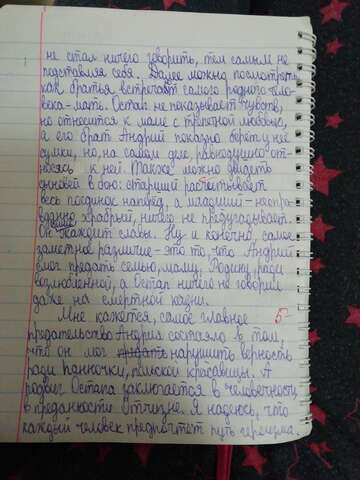 не стал ничего говорить, тем самым не
подставляя себя. Далее можно посмотреть,
как братья встречают самого родного чело-
века - мать. Остап не показывает чувств,
но относится к маме с трепетной любовью,
а его брат Андрий показно берет у неё
сумки, но, на самом деле, равнодушно от-
носясь к ней. Также можно увидеть
сыновей в бою: старший расчетывает
весь поединок наперёд, а младший - неспра-
ведливо храбрый, ничего не предугадывает.
Он жаждет славы. Ну и конечно, самое
заметное различие - это то, что Андрий
смог предать семью, маму, Родину, ради
возлюбленной, а Остап ничего не говорил
даже на смертной казни.
Мне кажется, самое главное 5-
предательство Андрия состояло в том,
что он мог нарушить верность
ради панночки, польской красавицы. А
подвиг Остапа заключается в человечности,
в преданности Отчизне. Я надеюсь, что
каждый человек предпочтет путь героизма.